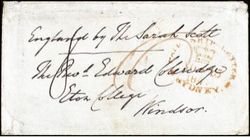 England by The Sarah Scott
The Revd. Edward Coleridge
Eton College
Windsor.
SHIP LETTER
SYDNEY